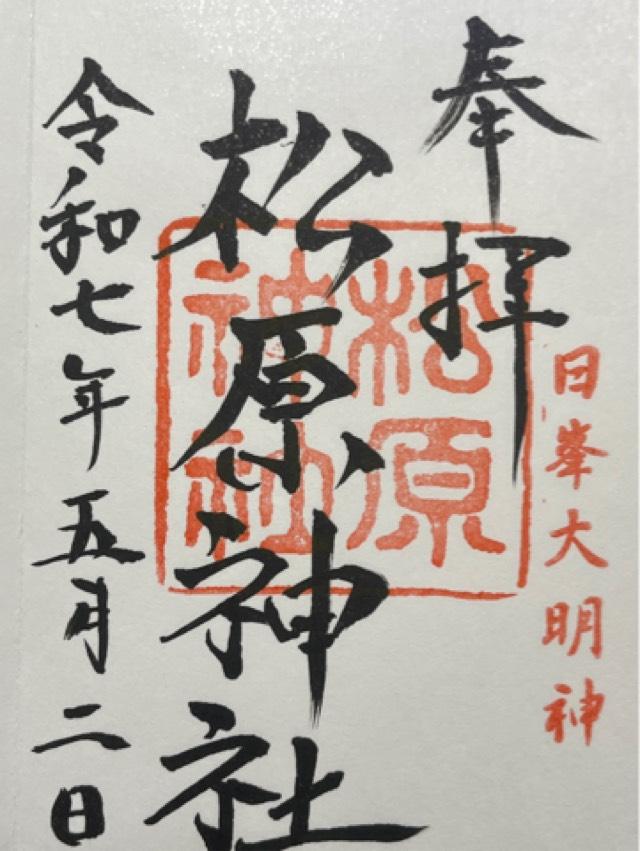 奉拝
日峯大明神
松原神社
松原
神社
令和七年五月二日